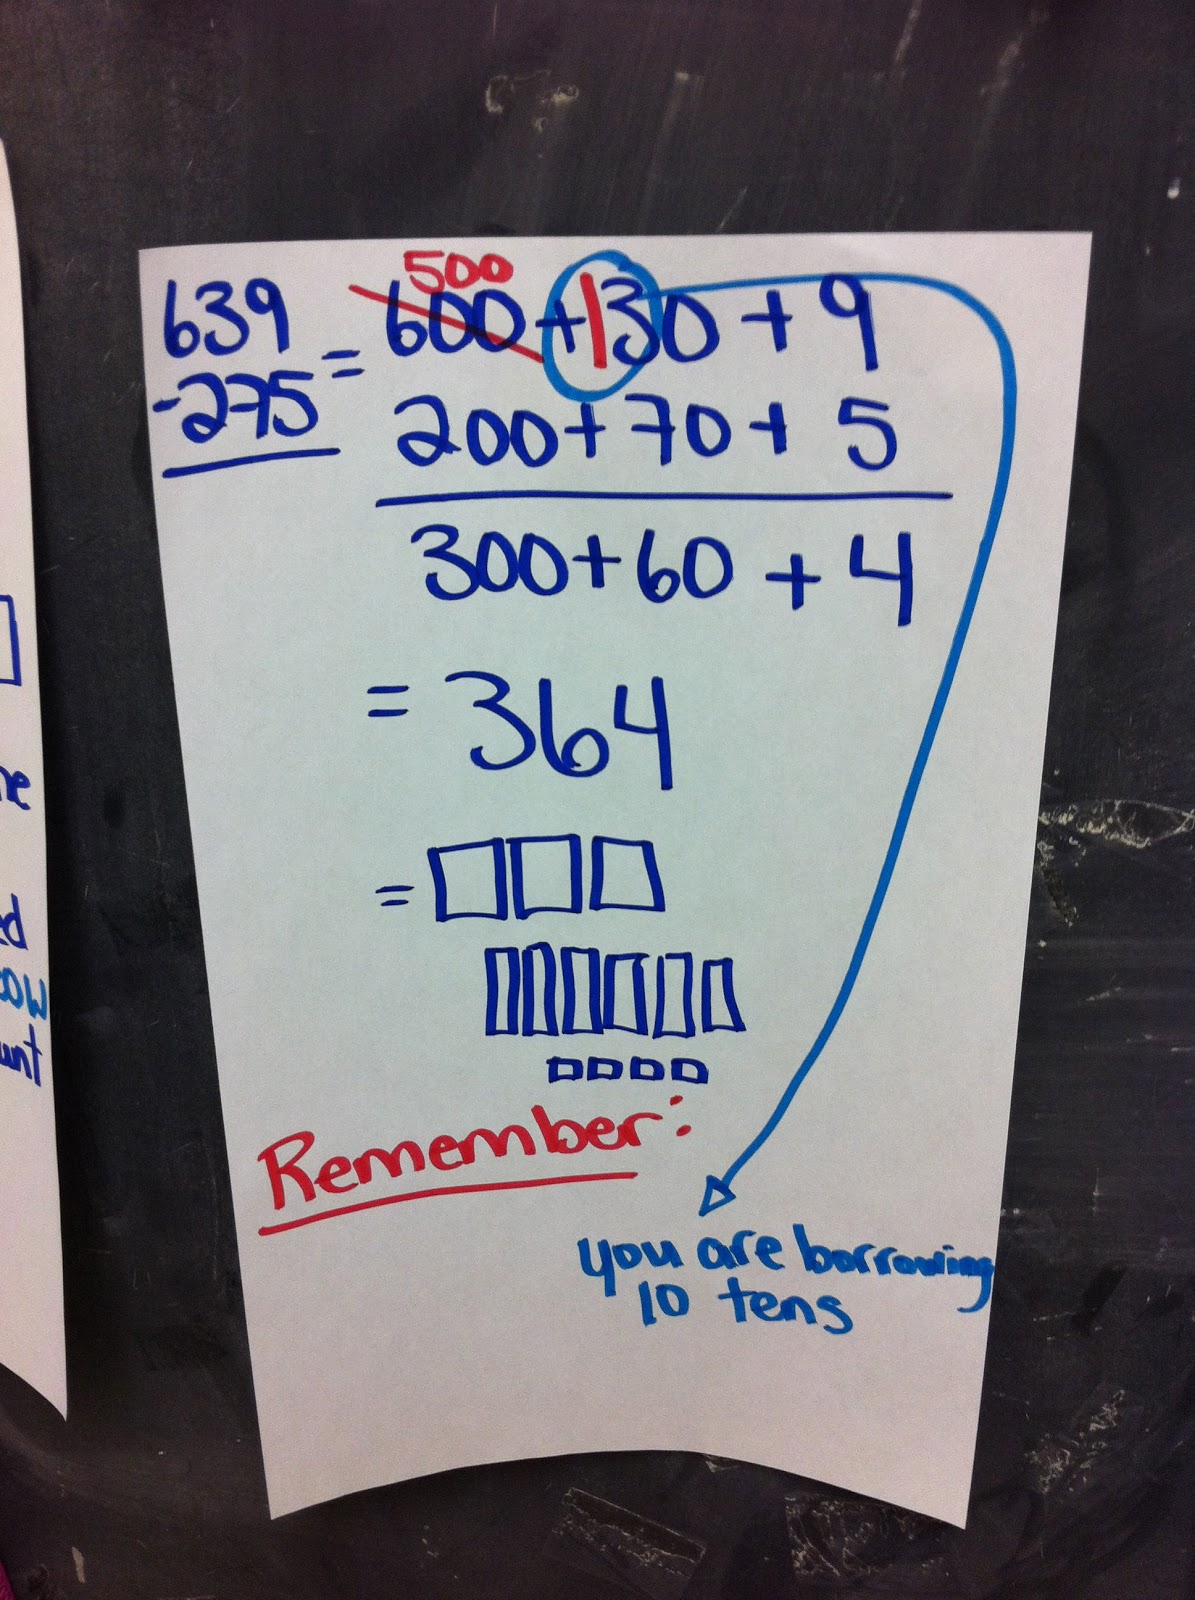 500
639 = 600 + 130 + 9
-275 200 + 70 + 5
300 + 60 + 4
= 364
=
Remember:
you are borrowing
10 tens